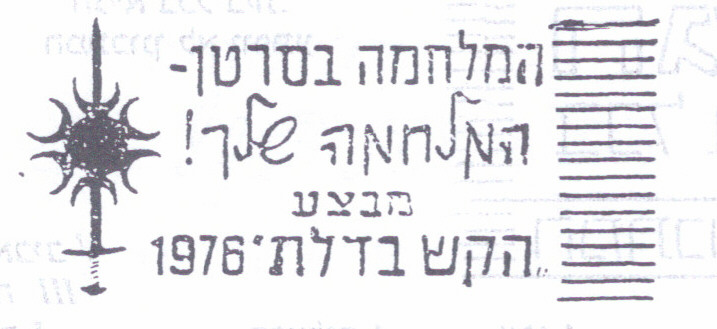 המלחמה בסרטן-
המלחמה שלך!
מבצע
"הקש בדלת" 1976